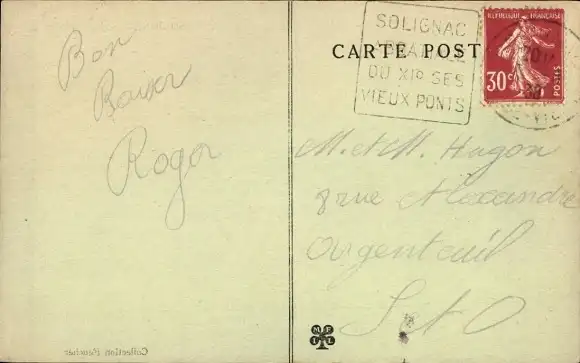 Bon
Baiser
Roger
CARTE POST
SOLIGNAC
ABBATIALE
DU XIº SES
VIEUX PONTS
REPUBLIQUE FRANÇAISE
30c
POSTES
M. et M. Hugon
8 rue Alexandre
Argenteuil
S et O
M F
I L
Collection Faucher